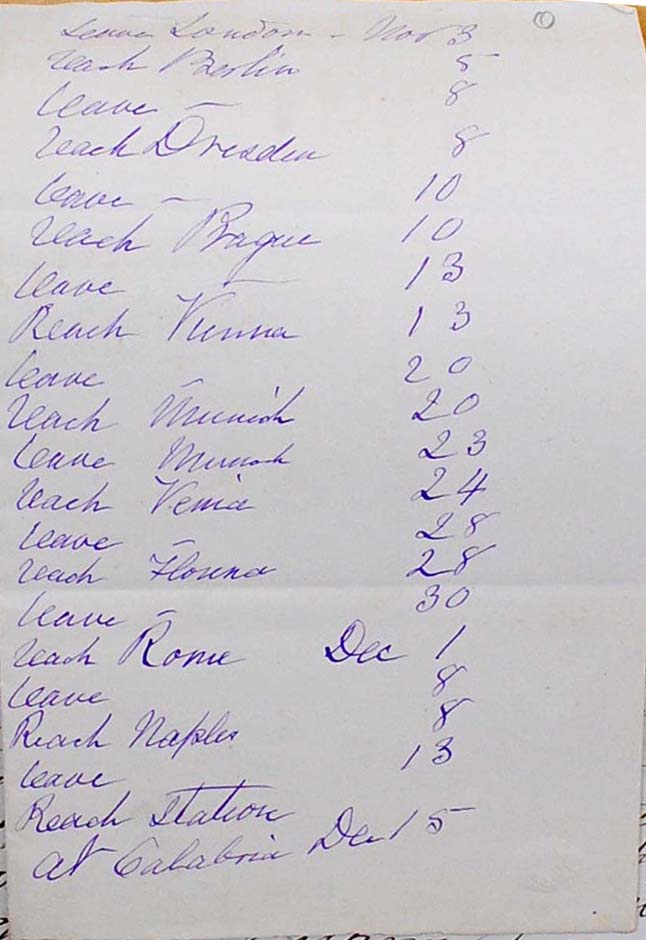 Leave London - Nov 3
reach Berlin 5
leave — 8
reach Dresden 8
leave — 10
reach Prague 10
leave — 13
Reach Vienna 13
leave — 20
reach Munich 20
leave Munich 23
reach Venice 24
leave — 28
reach Florence 28
leave — 30
reach Rome Dec 1
leave 8
Reach Naples 8
leave 13
Reach Station
at Calabria Dec 15